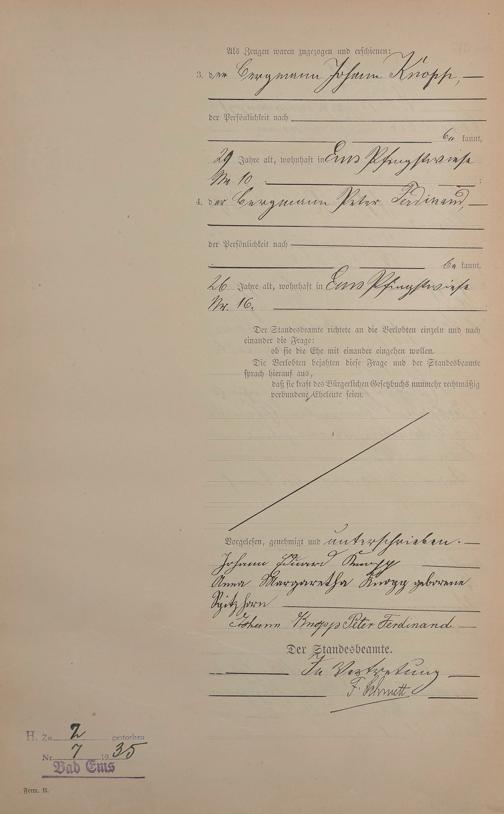 Als Zeugen waren zugezogen und erschienen:
3. der Bergmann Johann Knopp,
der Persönlichkeit nach
be kannt,
29 Jahre alt, wohnhaft in Ems Pfingstwiese
Nr. 10
4. der Bergmann Peter Ferdinand,
der Persönlichkeit nach
be kannt,
26 Jahre alt, wohnhaft in Ems Pfingstwiese
Nr. 16.
Der Standesbeamte richtete an die Verlobten einzeln und nach
einander die Frage:
ob sie die Ehe mit einander eingehen wollen.
Die Verlobten bejahten diese Frage und der Standesbeamte
sprach hierauf aus,
daß sie kraft des Bürgerlichen Gesetzbuchs nunmehr rechtmäßig
verbundene Eheleute seien.
Vorgelesen, genehmigt und unterschrieben.
Johann Eduard Knopp
Anna Margaretha Knopp geborene
Spitzhorn
Johann Knopp Peter Ferdinand
Der Standesbeamte.
In Vertretung
F. Schmitt
H. Zu 2 gestorben
Nr. 7 1935
Bad Ems
Form. B.